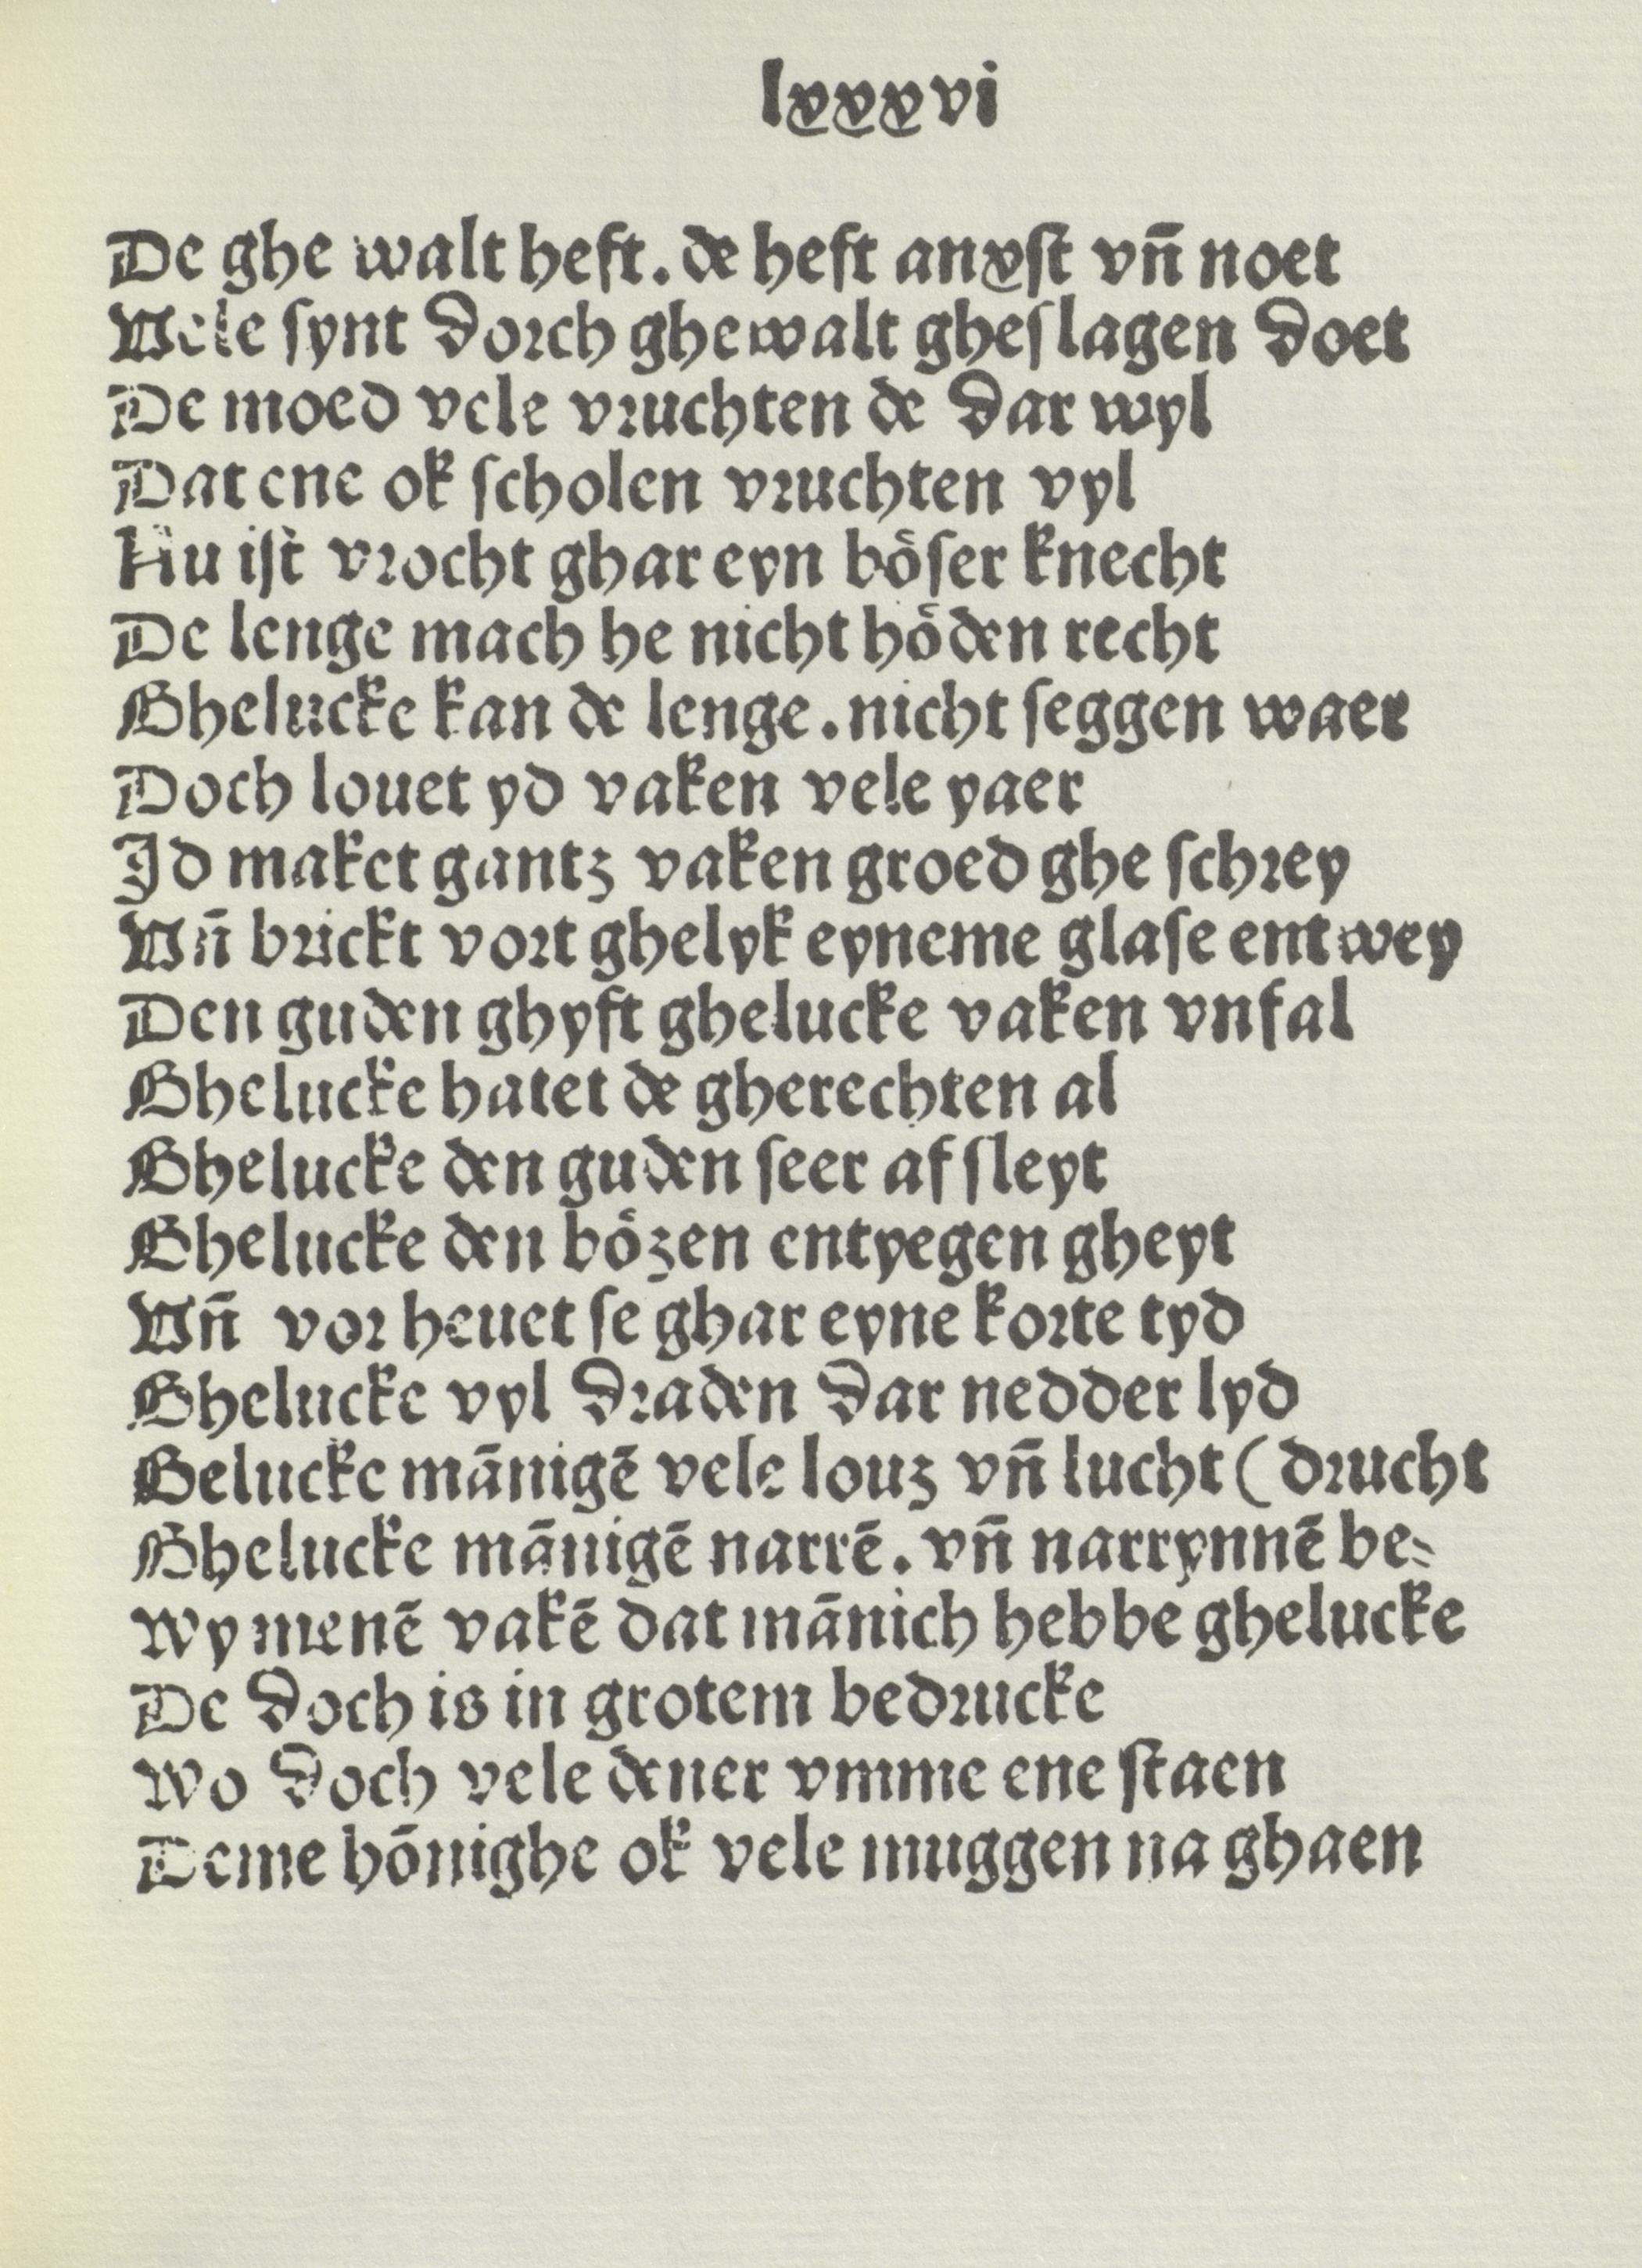 lxxxvi
De ghe walt heft. de heft anxſt vn̄ noet
Vele ſynt dorch ghewalt gheſlagen doet
De moed vele vruchten de dar wyl
Dat ene ok ſcholen vruchten vyl
Nu iſt vrocht ghar eyn böſer knecht
De lenge mach he nicht höden recht
Ghelucke kan de lenge. nicht ſeggen waer
Doch louet yd vaken vele yaer
Id maket gantz vaken groed ghe ſchrey
Vn̄ brickt vort ghelyk eyneme glaſe entwey
Den guden ghyft ghelucke vaken vnfal
Ghelucke hatet de gherechten al
Ghelucke den guden ſeer af ſleyt
Ghelucke den bözen entyegen gheyt
Vn̄ vor heuet ſe ghar eyne korte tyd
Ghelucke vyl draden dar nedder lyd
Gelucke mānigē vele louz vn̄ lucht (drucht
Ghelucke mānigē narrē. vn̄ narrynnē be⸗
wy menē vakē dat mānich hebbe ghelucke
De doch is in grotem bedrucke
wo doch vele dener vmme ene ſtaen
Deme hōnighe ok vele muggen na ghaen